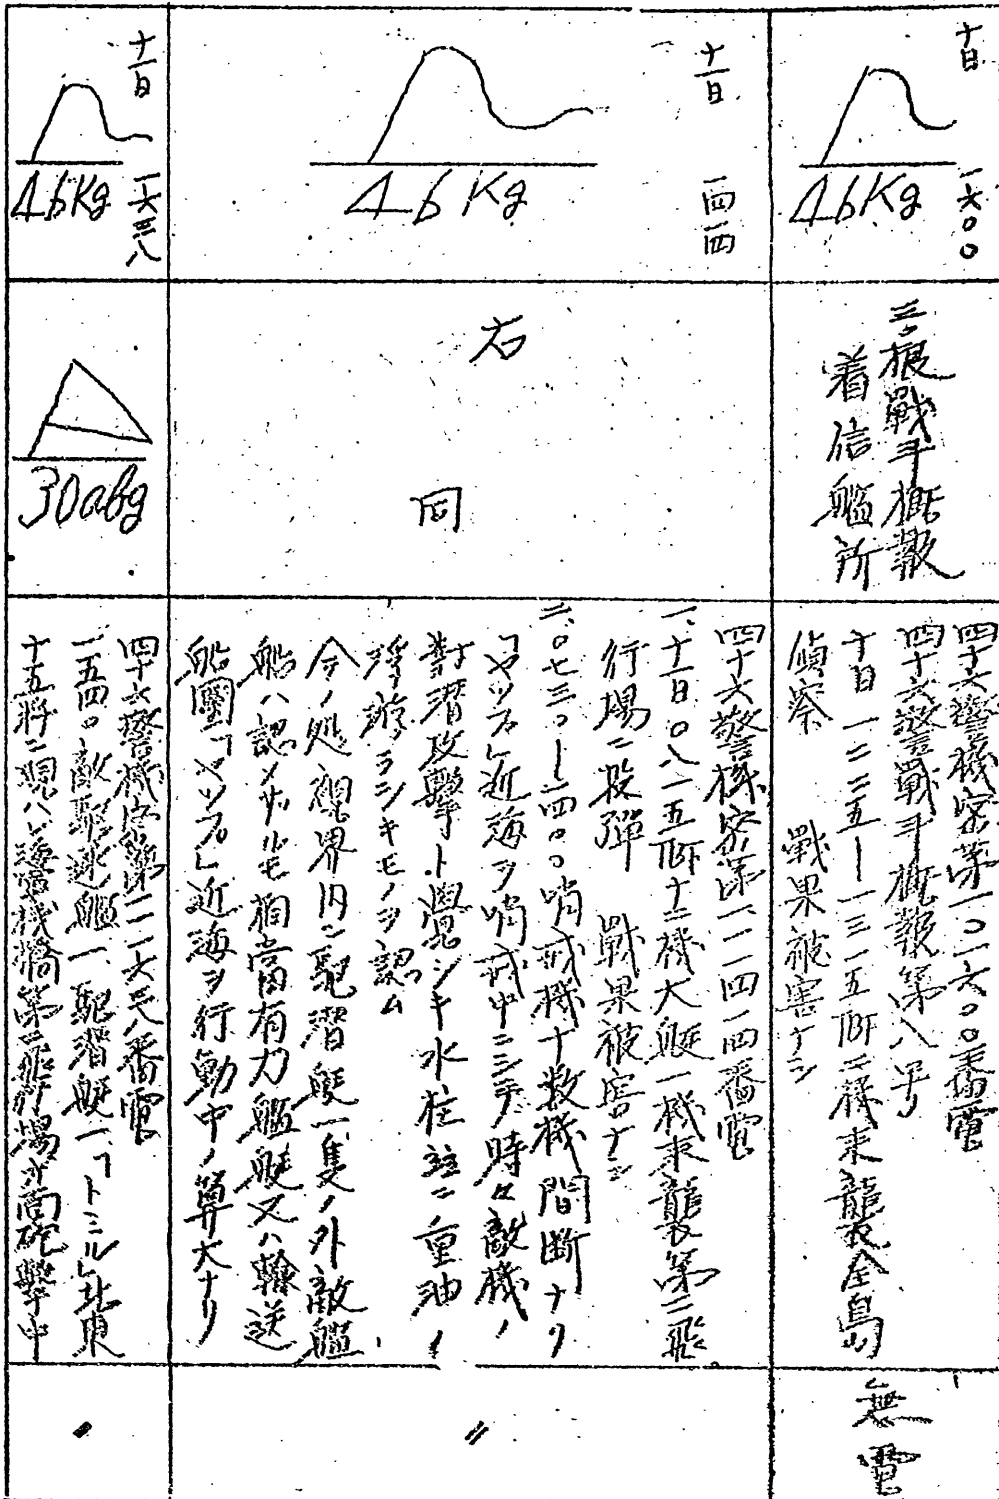 十日
一六〇〇
46Kg
三、根戰斗概報
着信艦所
四十六警機密第一〇一六〇〇番電
四十六警戰斗概報第八号
十日 一二二五—一三一五TBF二機来襲全島
偵察 戰果被害ナシ
無電
十一日
一四一四
46Kg
右
同
四十六警機密第一一一四一四番電
一、十一日〇八一五TBF十二機大艇一機来襲第二飛
行場ニ投彈 戰果被害ナシ
二、〇七三〇—一四〇〇哨戒機十数機間断ナク
「ヤップ」近海ヲ哨戒中ニシテ時々敵機ノ
對潜攻撃ト覺シキ水柱並ニ重油ノ
浮游ラシキモノヲ認ム
今ノ処視界内ニ駆潜艇一隻ノ外敵艦
船ハ認メザルモ相當有力艦艇又ハ輸送
船團「ヤップ」近海ヲ行動中ノ算大ナリ
〃
十一日
一六三八
46Kg
30abg
四十六警機密第一一一六三八番電
一五四〇敵駆逐艦一、駆潜艇一、「トミル」北東
十五粁ニ現ハレ
第二飛行場ヲ
砲撃中
〃